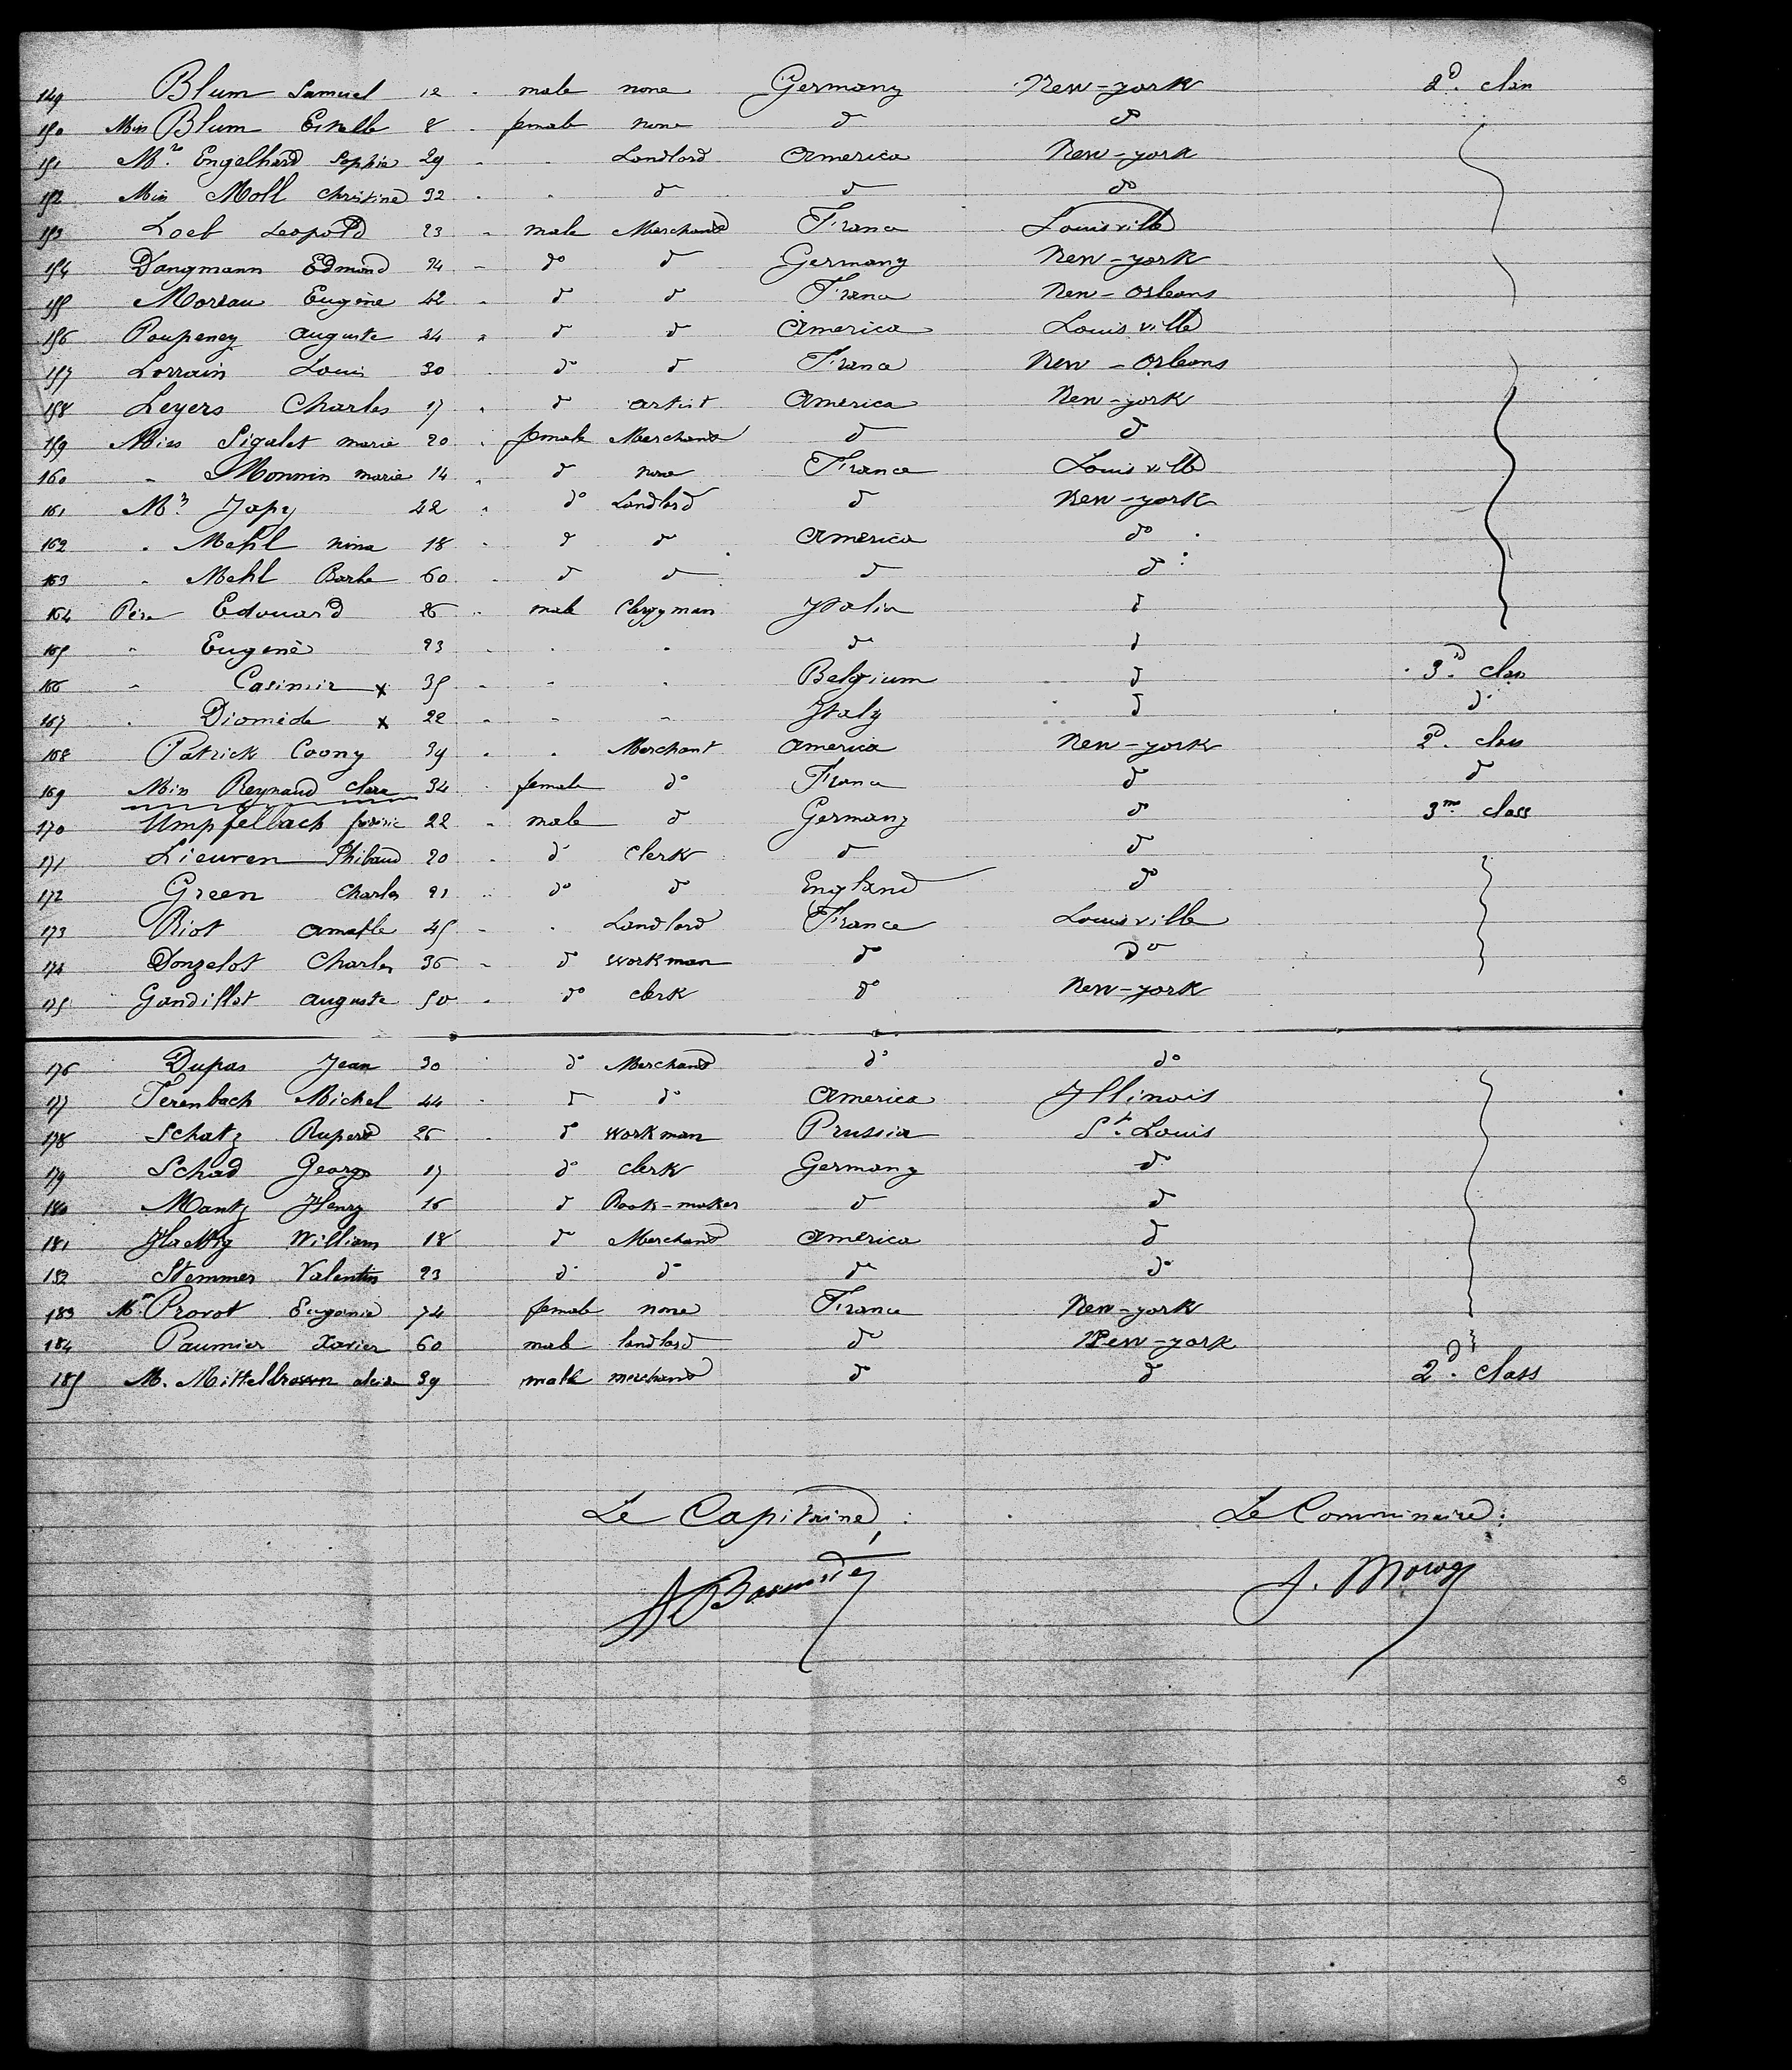 149 Blum Samuel 12 - male none Germany New-york 2d. class
150 Miss Blum Estelle 8 - female none do do
151 Mrs Engelhard Sophia 29 - - Landlord America New-york
152 Miss Moll Christine 32 - - do do do
153 Loeb Leopold 23 - male Merchand France Louisville
154 Dangmann Edmond 24 - do do Germany New-york
155 Moreau Eugène 42 - do do France New-Orleans
156 Poupeney Auguste 24 - do do America Louisville
157 Lorrain Louis 30 do do France New-Orleans
158 Leyers Charles 17 - do artist America New-york
159 Miss Sigalet Marie 20 - female Merchand do do
160 - Monnin Marie 14 - do none France Louisville
161 Mrs Japy 42 - do Landlord do New-york
162 - Mehl Nina 18 - do do America do
163 - Mehl Barbe 60 - do do do do
164 Père Edouard 26 - male Clergyman Italia do
165 - Eugène 23 - - - do do
166 - Casimir x 35 - - - Belgium do 3d. class
167 - Diomède x 22 - - - Italy do do
168 Patrick Coony 39 - - Merchant America New-york 2d. class
169 Miss Reynaud Clara 34 - female do France do do
170 Umpfelbach 22 - male do Germany do 3me class
171 Lieuren Thibaud 20 - do Clerk do do
172 Green Charles 21 - do do England do
173 Riot Amable 45 - - Landlord France Louisville
174 Donzelot Charles 36 - do workman do do
175 Gandillot Auguste 50 - do clerk do New-york
176 Dupas Jean 30 - do Merchand do do
177 Ferenbach Michel 44 - do do America Illinois
178 Schatz Rupert 26 - do workman Prussia St. Louis
179 Schad George 17 do clerk Germany do
180 Mantz Henry 16 do Book-maker do do
181 Hattig William 18 do Merchand America do
182 Stemmer Valentin 23 do do do do
183 Me Provot Eugenie 74 female none France New-york
184 Paumier Xavier 60 male landlord do New-york
185 M. Mittelbronn 39 male merchand do do 2d. class
Le Capitaine,
Le Commissaire: